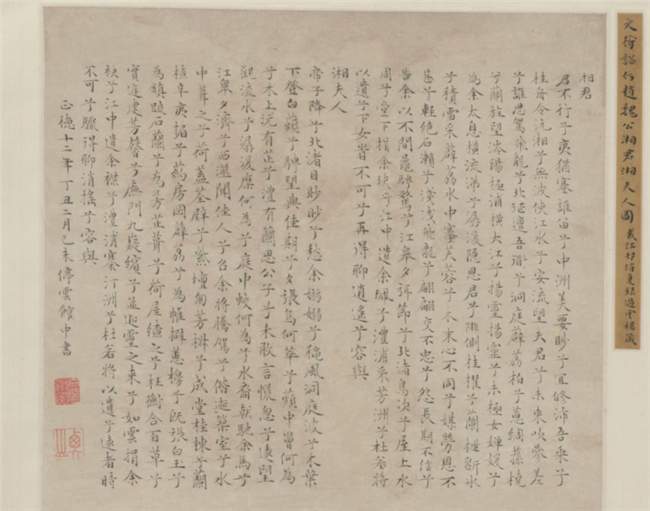 文待詔仿趙魏公湘君湘夫人圖
湘君
君不行兮夷猶蹇誰留兮中洲美要眇兮宜修沛吾乘兮
桂舟令沅湘兮無波使江水兮安流望夫君兮未來吹參差
兮誰思駕飛龍兮北征邅吾道兮洞庭薜荔柏兮蕙綢蓀橈
兮蘭旌望涔陽兮極浦橫大江兮揚靈揚靈兮未極女嬋媛兮
為余太息橫流涕兮潺湲隱思君兮陫側桂櫂兮蘭枻斲冰
兮積雪采薜荔兮水中搴芙蓉兮木末心不同兮媒勞恩不
甚兮輕絕石瀨兮淺淺飛龍兮翩翩交不忠兮怨長期不信兮
告余以不閒鼂騁騖兮江皋夕弭節兮北渚鳥次兮屋上水
周兮堂下捐余玦兮江中遺余佩兮澧浦采芳洲兮杜若將
以遺兮下女旹不可兮再得聊逍遙兮容與
湘夫人
帝子降兮北渚目眇眇兮愁余嫋嫋兮秋風洞庭波兮木葉
下登白薠兮騁望與佳期兮夕張鳥何萃兮蘋中罾何為
兮木上沅有芷兮澧有蘭思公子兮未敢言慌忽兮遠望
觀流水兮潺湲麋何為兮庭中蛟何為兮水裔朝馳余馬兮
江皋夕濟兮西澨聞佳人兮召余將騰駕兮偕逝築室兮水
中葺之兮荷蓋荃壁兮紫壇匊芳椒兮成堂桂棟兮蘭
橑辛夷楣兮藥房罔薜荔兮為帷擗蕙櫋兮既張白玉兮
為鎮疏石蘭兮為芳芷葺兮荷屋繚之兮杜衡合百草兮
實庭建芳馨兮廡門九嶷繽兮並迎靈之來兮如雲捐余
袂兮江中遺余褋兮澧浦搴汀洲兮杜若將以遺兮遠者時
不可兮驟得聊消搖兮容與
正德十二年丁丑二月己未停雲館中書